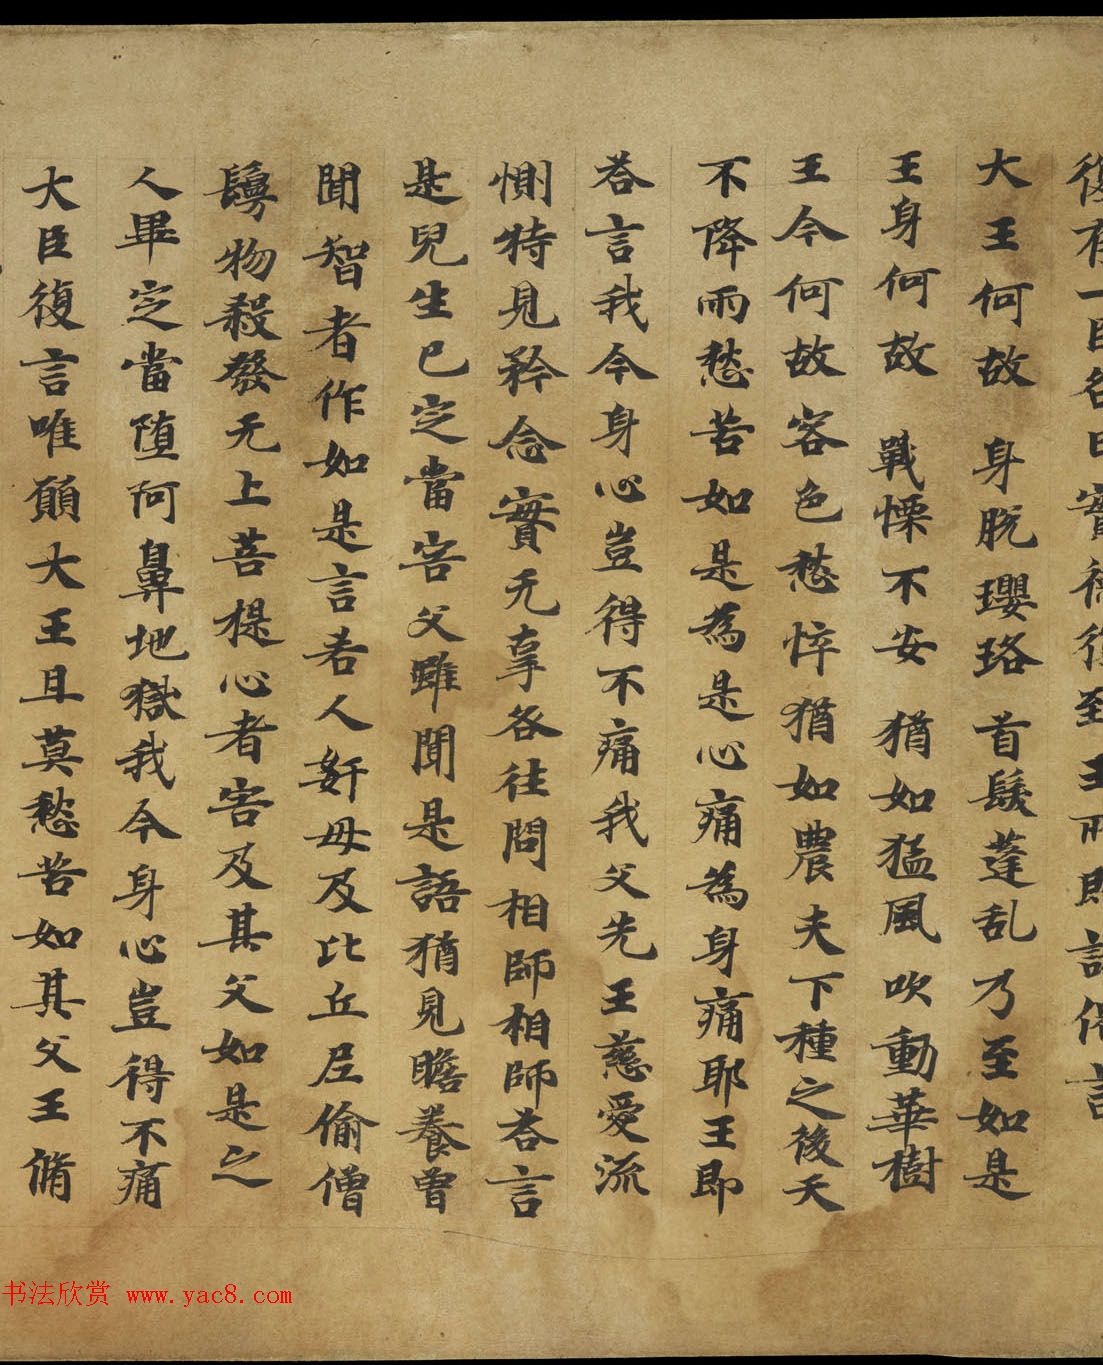 復有一臣名曰實德復到王所即說偈言
大王何故 身脫瓔珞 首髮蓬乱 乃至如是
王身何故 戰慄不安 猶如猛風 吹動華樹
王今何故容色愁悴猶如農夫下種之後天
不降雨愁苦如是為是心痛為身痛耶王即
荅言我今身心豈得不痛我父先王慈愛流
惻特見矜念實无辜咎往問相師相師荅言
是兒生已定當害父雖聞是語猶見瞻養曾
聞智者作如是言若人姧母及比丘尼偷僧
鬘物殺發无上菩提心者害及其父如是之
人畢定當堕阿鼻地獄我今身心豈得不痛
大臣復言唯願大王且莫愁苦如其父王脩
书法欣赏 www.yac8.com